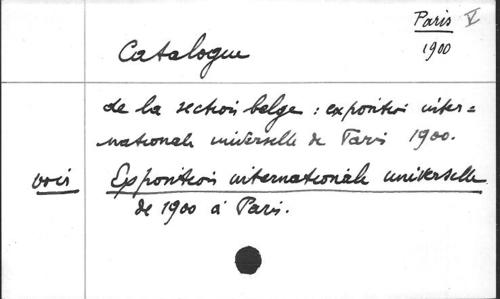 Paris V
1900
Catalogue
de la section belge : exposition inter=
nationale universelle de Paris 1900.
voir Exposition internationale universelle
de 1900 à Paris.